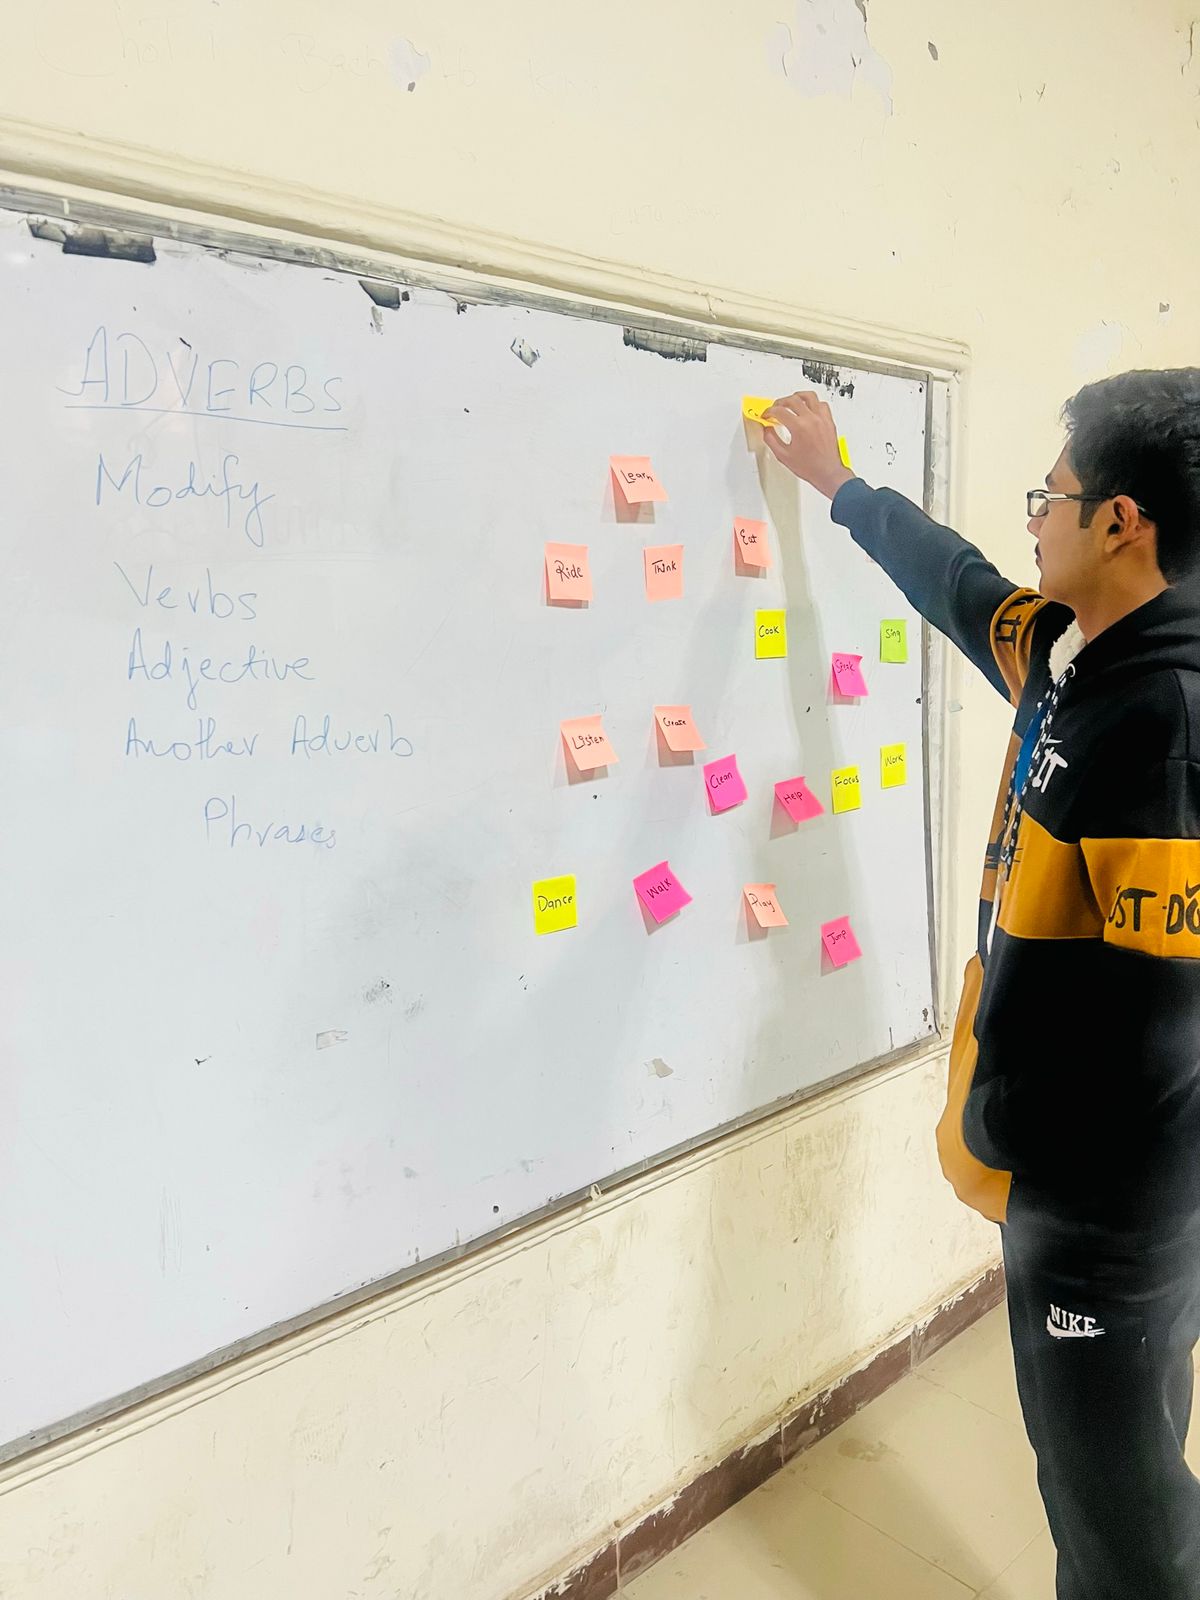 ADVERBS
Modify
Verbs
Adjective
Another Adverb
Phrases
Learn
Ride
Think
Eat
Cook
Sing
Listen
Create
Clean
Help
Focus
Work
Dance
Walk
Play
Jump
NIKE